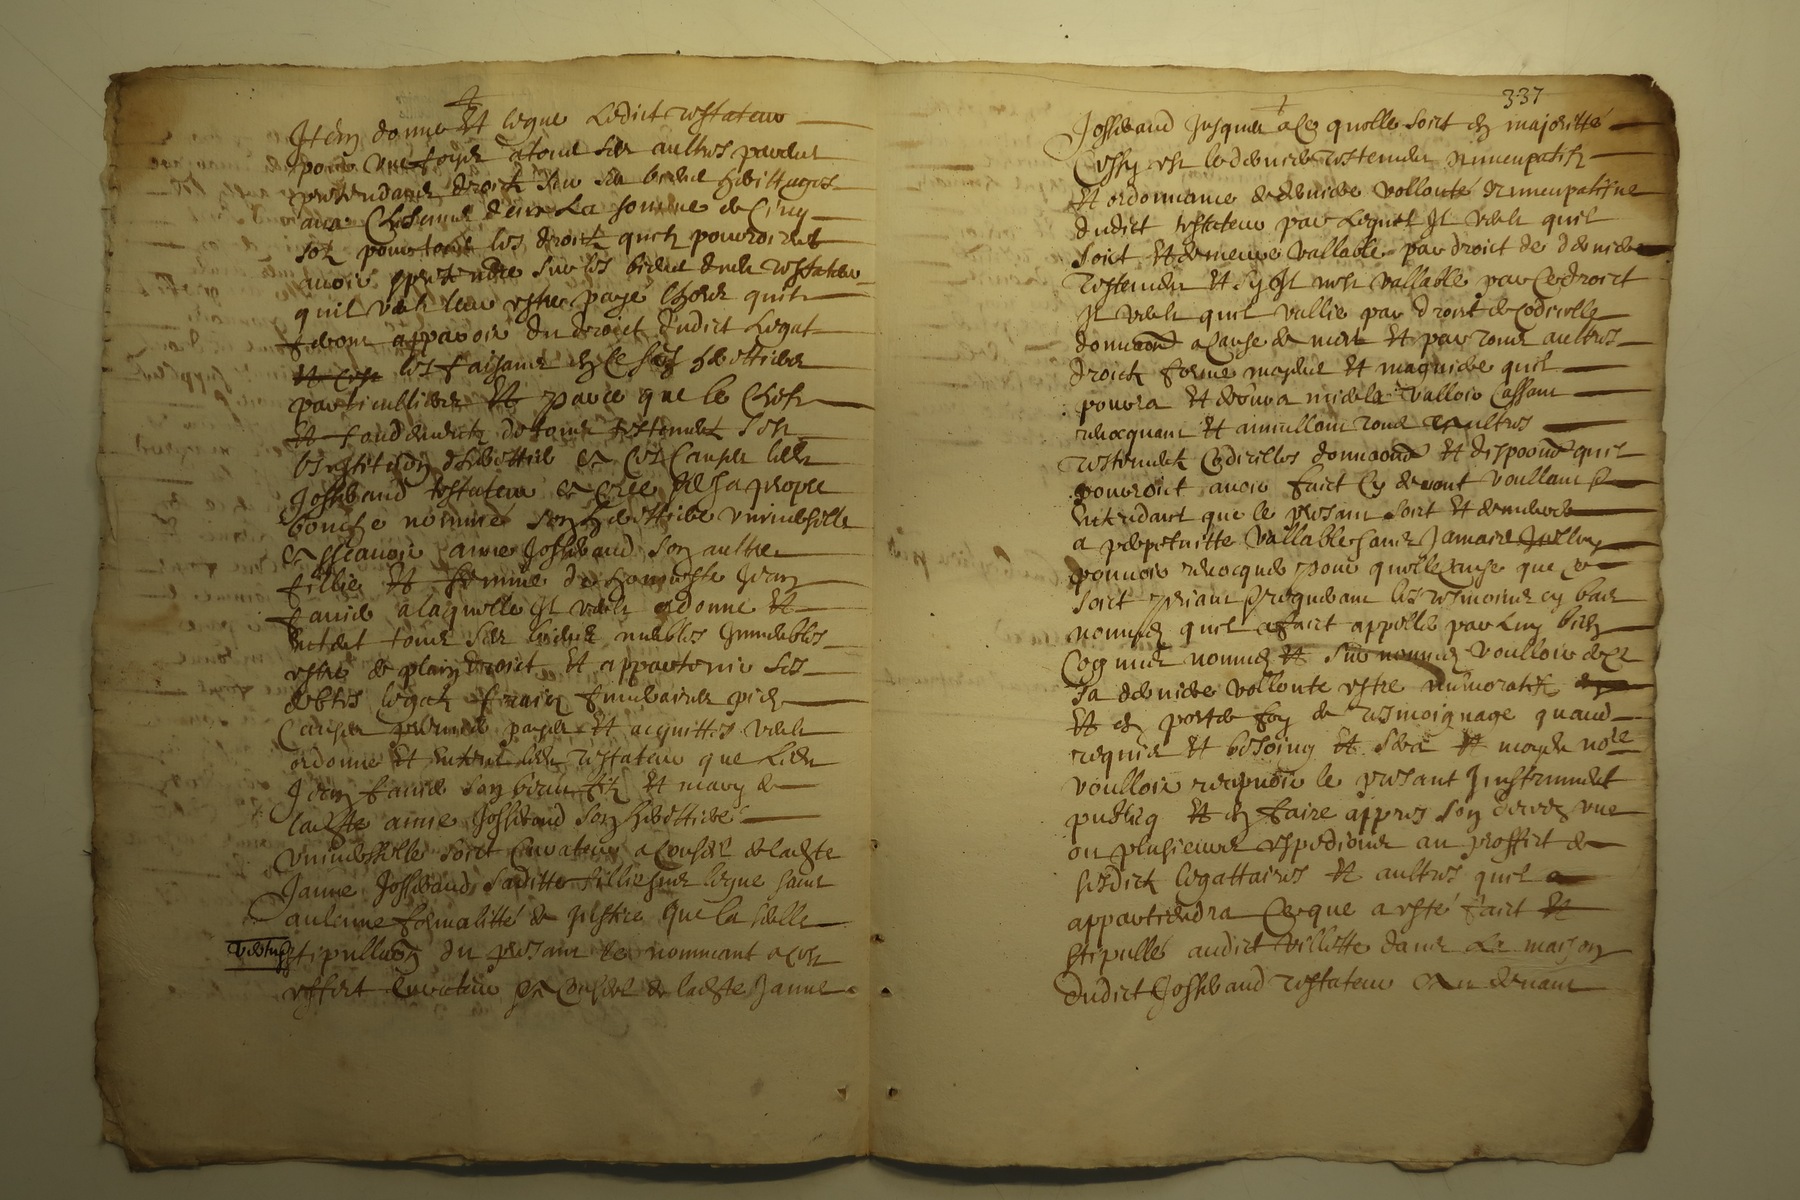 Item donne et legue ledict testateur
pour une foys a tous ses aultres parens
pretendans droict sur ses biens heritages
a un chescung deux la somme de cinq
solz pour tous les droictz quilz pourroient
avoir pretendre sur les biens dudict testateur
quil veult leur estre paye lhors quilz
feront apparoir du droict dudict legat
les faisans en ce ses heritiers
particulliers et parce que le chefz
et fondement de tous testement sont
linstitution dheritier a ces causes ledict
Josserand testateur a cree de sa propre
bouche nomme son heritiere universelle
a scavoir anne Josserand son aultre
fillie et femme de honneste Jean
faure a laquelle Il veult donne et
entent tous ses biens meubles Immeubles
estre de plain droict et appartenir ses
debtes legatz fraiz funeraires pies
causes premier payes et acquittes veult
ordonne et entent ledict testateur que ledict
Jean faure son beau filz et mary de
ladicte anne Josserand son heritiere
universelle soict curateur a conseil de ladicte
Janne Josserand saditte fillie sans
aulcune formalitté de justice que la seulle
stipullaon du presant le nommant a cest
effect curateur et conseil de ladicte Janne
337
Josserand jusques a ce quelle soict en majoritté
Cessy est le dernier testement nuncupatifz
et ordonnance de derniere vollonté nuncupatifve
dudict testateur par lequel Il veult quil
soict et demeure vallable par droict de dernier
testement et sy Il nest vallable par ce droict
Il veult quil vallie par droict de codicille
donnaon a cause de mort et par tous aultres
droictz forme moyens et maniere quil
pourra et debvra mieulx valloir Cassant
revocquant et annullant tous aultres
testementz Codicilles donnaons et dispoons quil
pourroict avoir faict cy devant voullant et
entendant que le presant soict et demeure
a perpetuitté vallable sans jamais
pouvoir revocquer pour quelle cause que ce
soict priant et requerant les tesmoins cy bas
nommes quil a faict appelle par luy bien
cogneus nommes et sur nommes voulloir de
sa derniere vollonte estre memoratifz
et en porter foy de tesmoignage quand
requis et besoing et sera et moy dict note
voulloir recepvoir le presant Instrument
publicq et en faire appres son deces une
ou plusieurs expedions au proffict de
sesdictz legattaires et aultres quil
appartiendra Ce que a esté faict et
stipullé audict villette dans la maison
dudict Josserand testateur devant